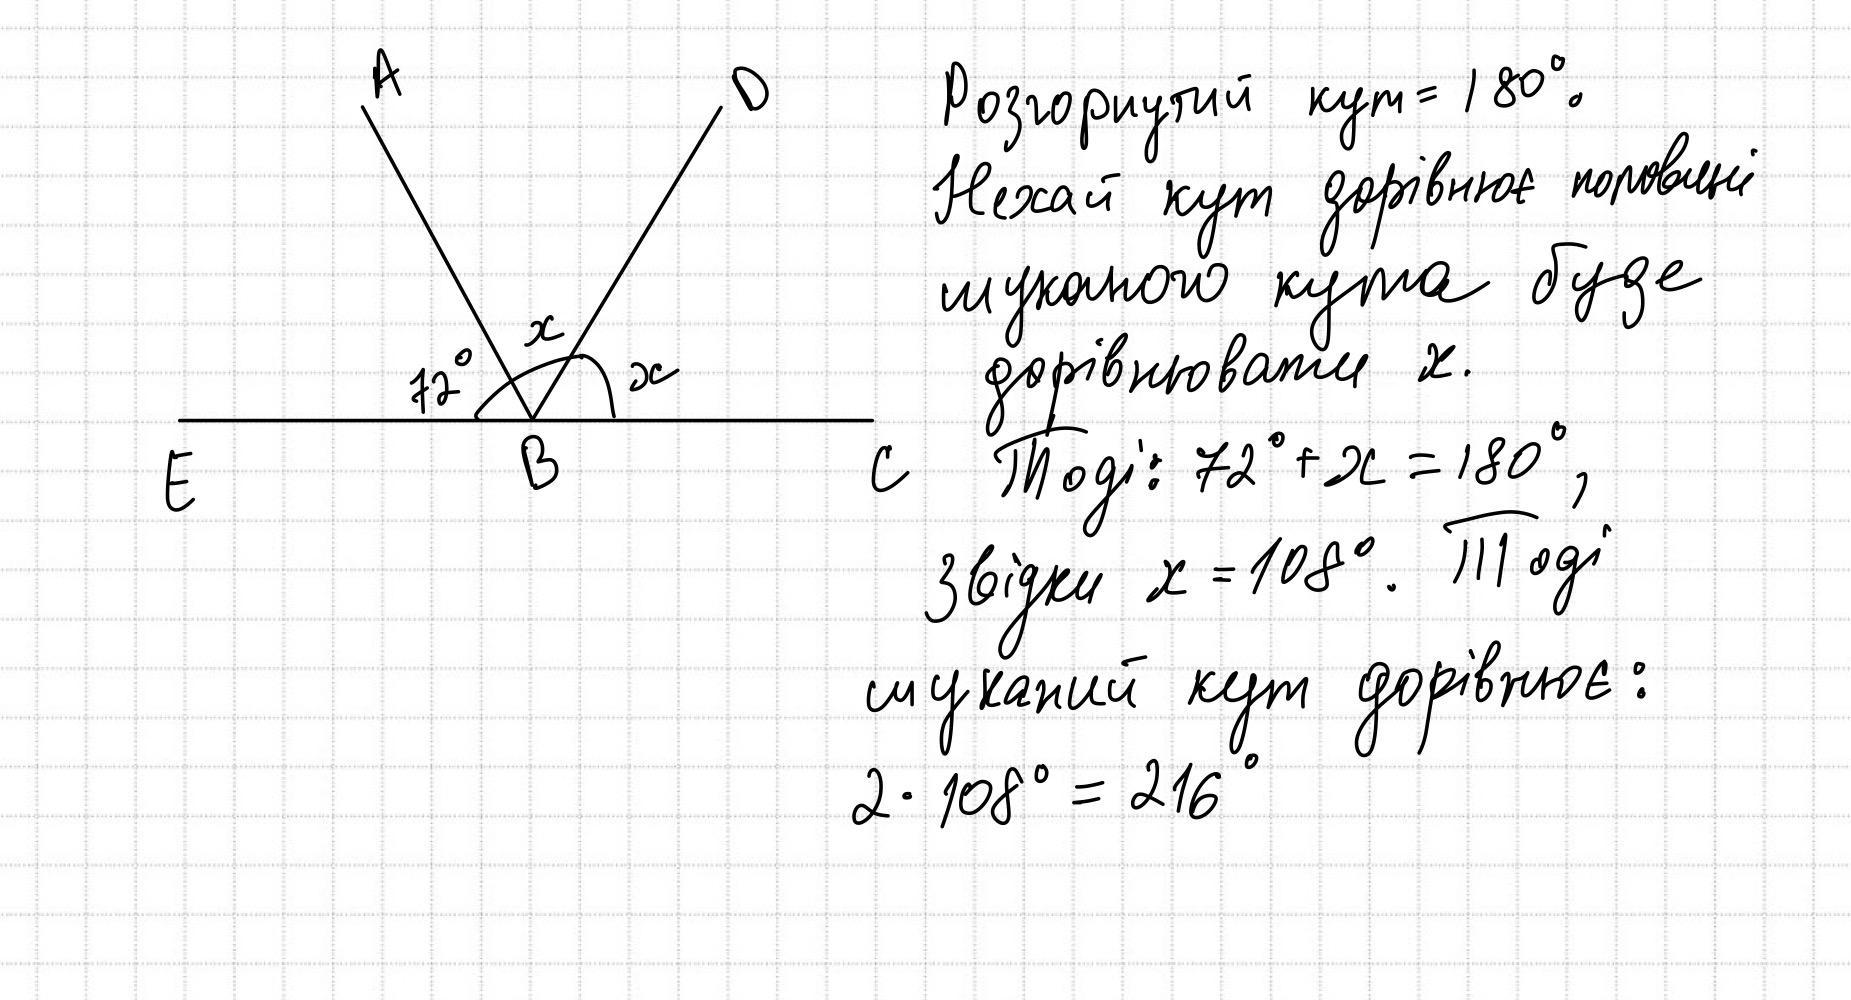 A
D
x
72°
x
E
B
C
Розгорнутий кут = 180°.
Нехай кут дорівнює половині
шуканого кута буде
дорівнювати x.
Тоді: 72° + x = 180°,
Звідки x = 108°. Тоді
шуканий кут дорівнює:
2 · 108° = 216°